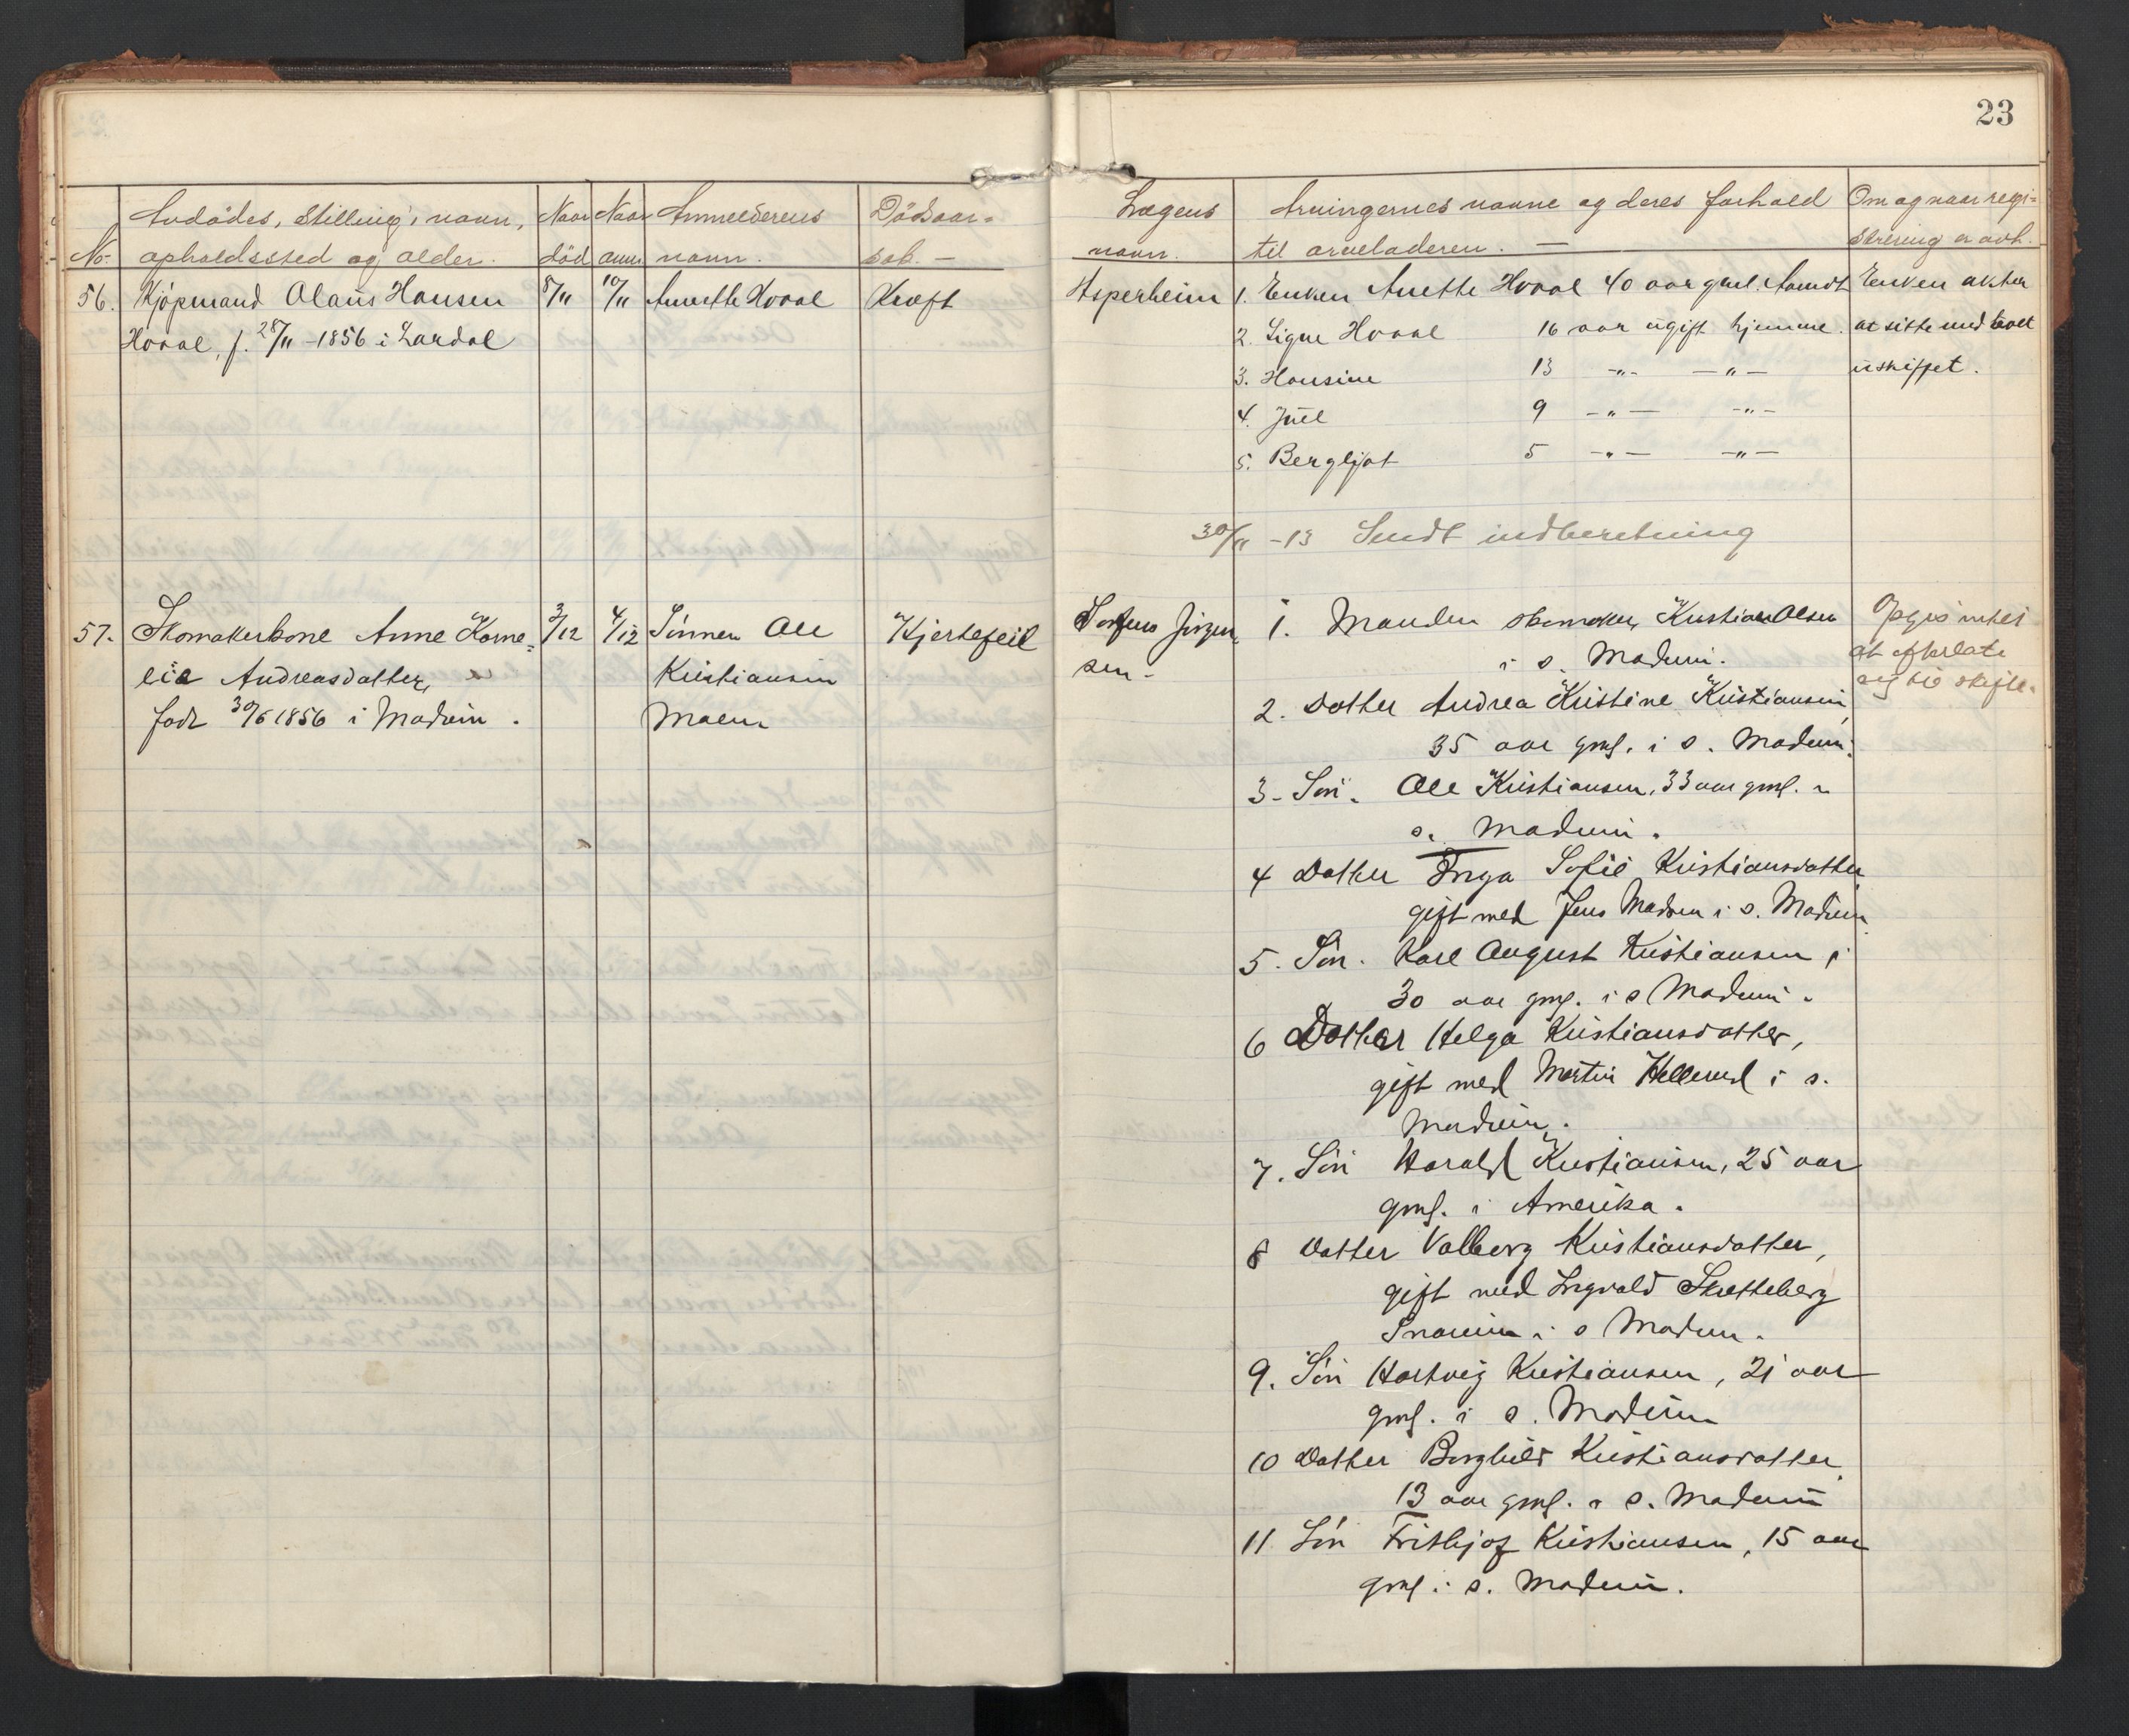 23
Avdödes, Stilling, navn, Naar Naar Anmelderens Dödsaar=
No. opholdssted og alder. död anm. navn. sak. —
56. Kjöpmand Olaus Hansen 8/11 10/11 Annette Hvaal Kræft
Hvaal, f. 28/11 - 1856 i Lardal
57. Skomakerkone Anne Korne= 3/12 4/12 Sönnen Ole Hjertefeil
lia Andreasdatter, Kristiansen
født 30/6 1856 i Modum. Moen
Lægens Arvingernes navne og deres forhold Om og naar regi=
navn. til arveladeren. — strering er avh.
Asperheim 1. Enken Anette Hvaal 40 aar gml. Aamot Enken akter
2. Signe Hvaal 16 aar ugift hjemme. at sitte med boet
3. Hansine 13 -"- -"- uskiftet.
4. Juel 9 -"- -"-
5. Bergljot 5 -"- -"-
30/11 - 13 Sendt indberetning
1. Manden skomaker Kristian Olsen Opgis intet
sen. i s. Modum. at efterlate
sig til skifte.
2. Datter Andrea Kristine Kristiansen,
35 aar gml. i s. Modum.
3. Sön. Ole Kristiansen, 33 aar gml. i
s. Modum.
4 Datter Inga Sofie Kristiansdatter
gift med Jens Madsen i s. Modum
5. Sön. Karl August Kristiansen,
30 aar gml. i s Modum.
6 Datter Helga Kristiansdatter,
gift med Martin Hellerud i s.
Modum.
7. Sön Harald Kristiansen, 25 aar
gml. i Amerika.
8 Datter Valborg Kristiansdatter,
gift med Ingvald Skretteberg
Snarum i s Modum.
9. Sön Hartvig Kristiansen, 21 aar
gml. i s. Modum
10 Datter Borghild Kristiansdatter,
13 aar gml. i s. Modum
11 Sön Frithjof Kristiansen, 15 aar
gml i s. Modum.